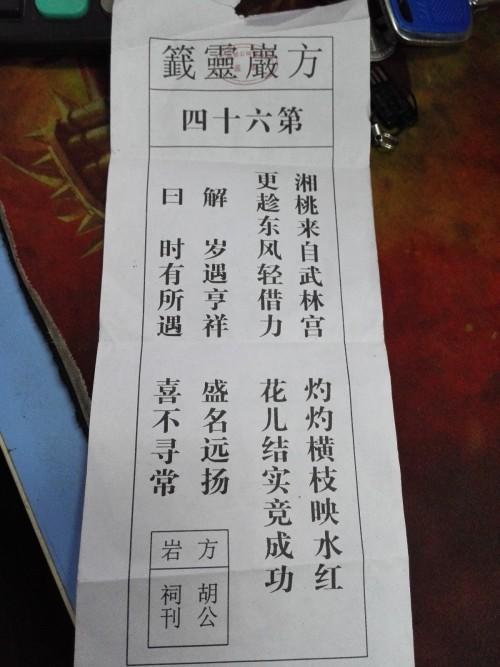 方巖靈籤
第六十四
湘桃来自武林宫 灼灼横枝映水红
更趁东风轻借力 花儿结实竞成功
解 岁遇亨祥 盛名远扬
曰 时有所遇 喜不寻常
方岩
胡公祠刊